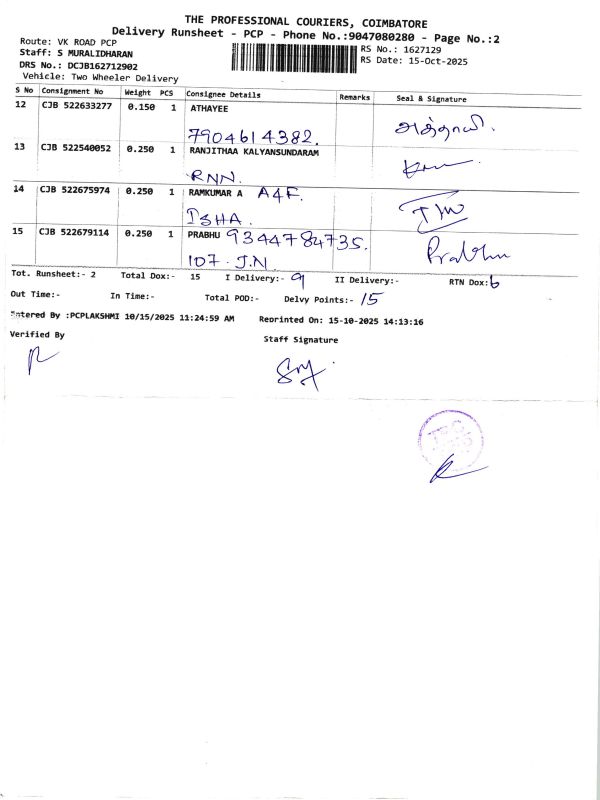 THE PROFESSIONAL COURIERS, COIMBATORE
Delivery Runsheet - PCP - Phone No.:9047080280 - Page No.:2
Route: VK ROAD PCP
Staff: S MURALIDHARAN
DRS No.: DCJB162712902
Vehicle: Two Wheeler Delivery
RS No.: 1627129
RS Date: 15-Oct-2025
S No Consignment No Weight PCS Consignee Details Remarks Seal & Signature
12 CJB 522633277 0.150 1 ATHAYEE
7904614382. அத்தாயி.
13 CJB 522540052 0.250 1 RANJITHAA KALYANSUNDARAM
RNN.
14 CJB 522675974 0.250 1 RAMKUMAR A A4F.
ISHA.
15 CJB 522679114 0.250 1 PRABHU 9344784735.
107. J.N. Prabhu
Tot. Runsheet:- 2 Total Dox:- 15 I Delivery:- 9 II Delivery:- RTN Dox: 6
Out Time:- In Time:- Total POD:- Delvy Points:- 15
Entered By :PCPLAKSHMI 10/15/2025 11:24:59 AM Reprinted On: 15-10-2025 14:13:16
Verified By Staff Signature